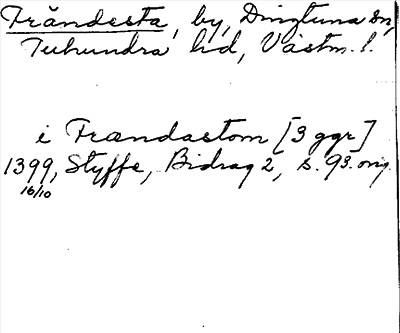 Frändesta, by, Dingtuna sn,
Tuhundra hd, Västm. l.
i Frændastom [3 ggr]
1399, Styffe, Bidrag 2, s. 93. orig.
16/10